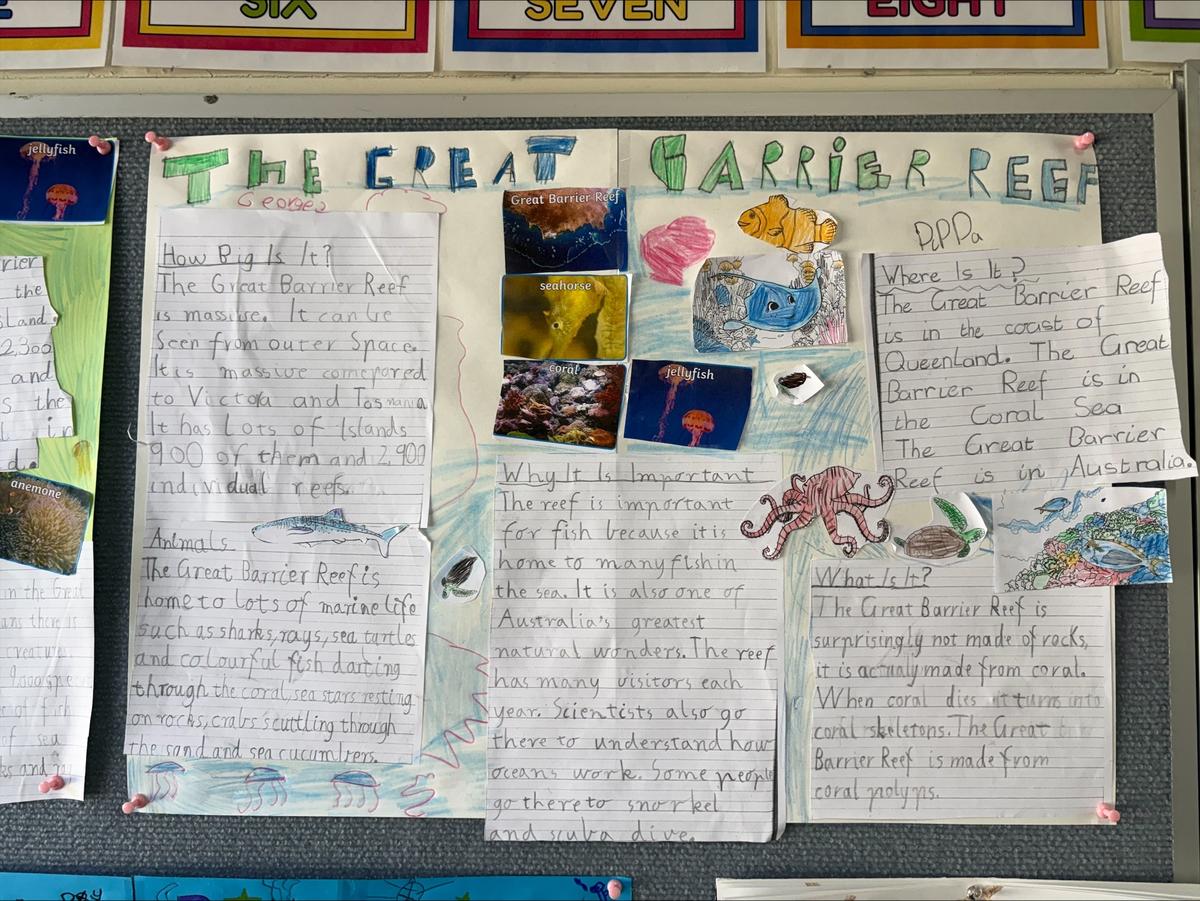 SIX
SEVEN
EIGHT
jellyfish
rier
the
sLand
2,300
and
s the
l in
d.
anemone
in the Great
ans there is
creatures
9,000 spec
s of fish
of sea
THE GREAT BARRIER REEF
Georges
PiPPa
How Big Is It?
The Great Barrier Reef
is massive. It can be
seen from outer space.
It is massive comepared
to Victora and Tasmania
It has Lots of Islands
900 of them and 2,900
individual reefs.
Animals
The Great Barrier Reef is
home to lots of marine life
such as sharks, rays, sea turtles
and colourful fish darting
through the coral, sea stars resting
on rocks, crabs scuttling through
the sand and sea cucumbers.
Great Barrier Reef
seahorse
coral
jellyfish
Why It Is Important
The reef is important
for fish because it is
home to many fish in
the sea. It is also one of
Australia's greatest
natural wonders. The reef
has many visitors each
year. Scientists also go
there to understand how
oceans work. Some people
go there to snorkel
and scuba dive.
Where Is It?
The Great Barrier Reef
is in the coust of
Queenland. The Great
Barrier Reef is in
the Coral Sea
The Great Barrier
Reef is in Australia.
What Is It?
The Great Barrier Reef is
surprisingly not made of rocks,
it is actualy made from coral.
When coral dies it turns into
coral skeletons. The Great
Barrier Reef is made from
coral polyps.